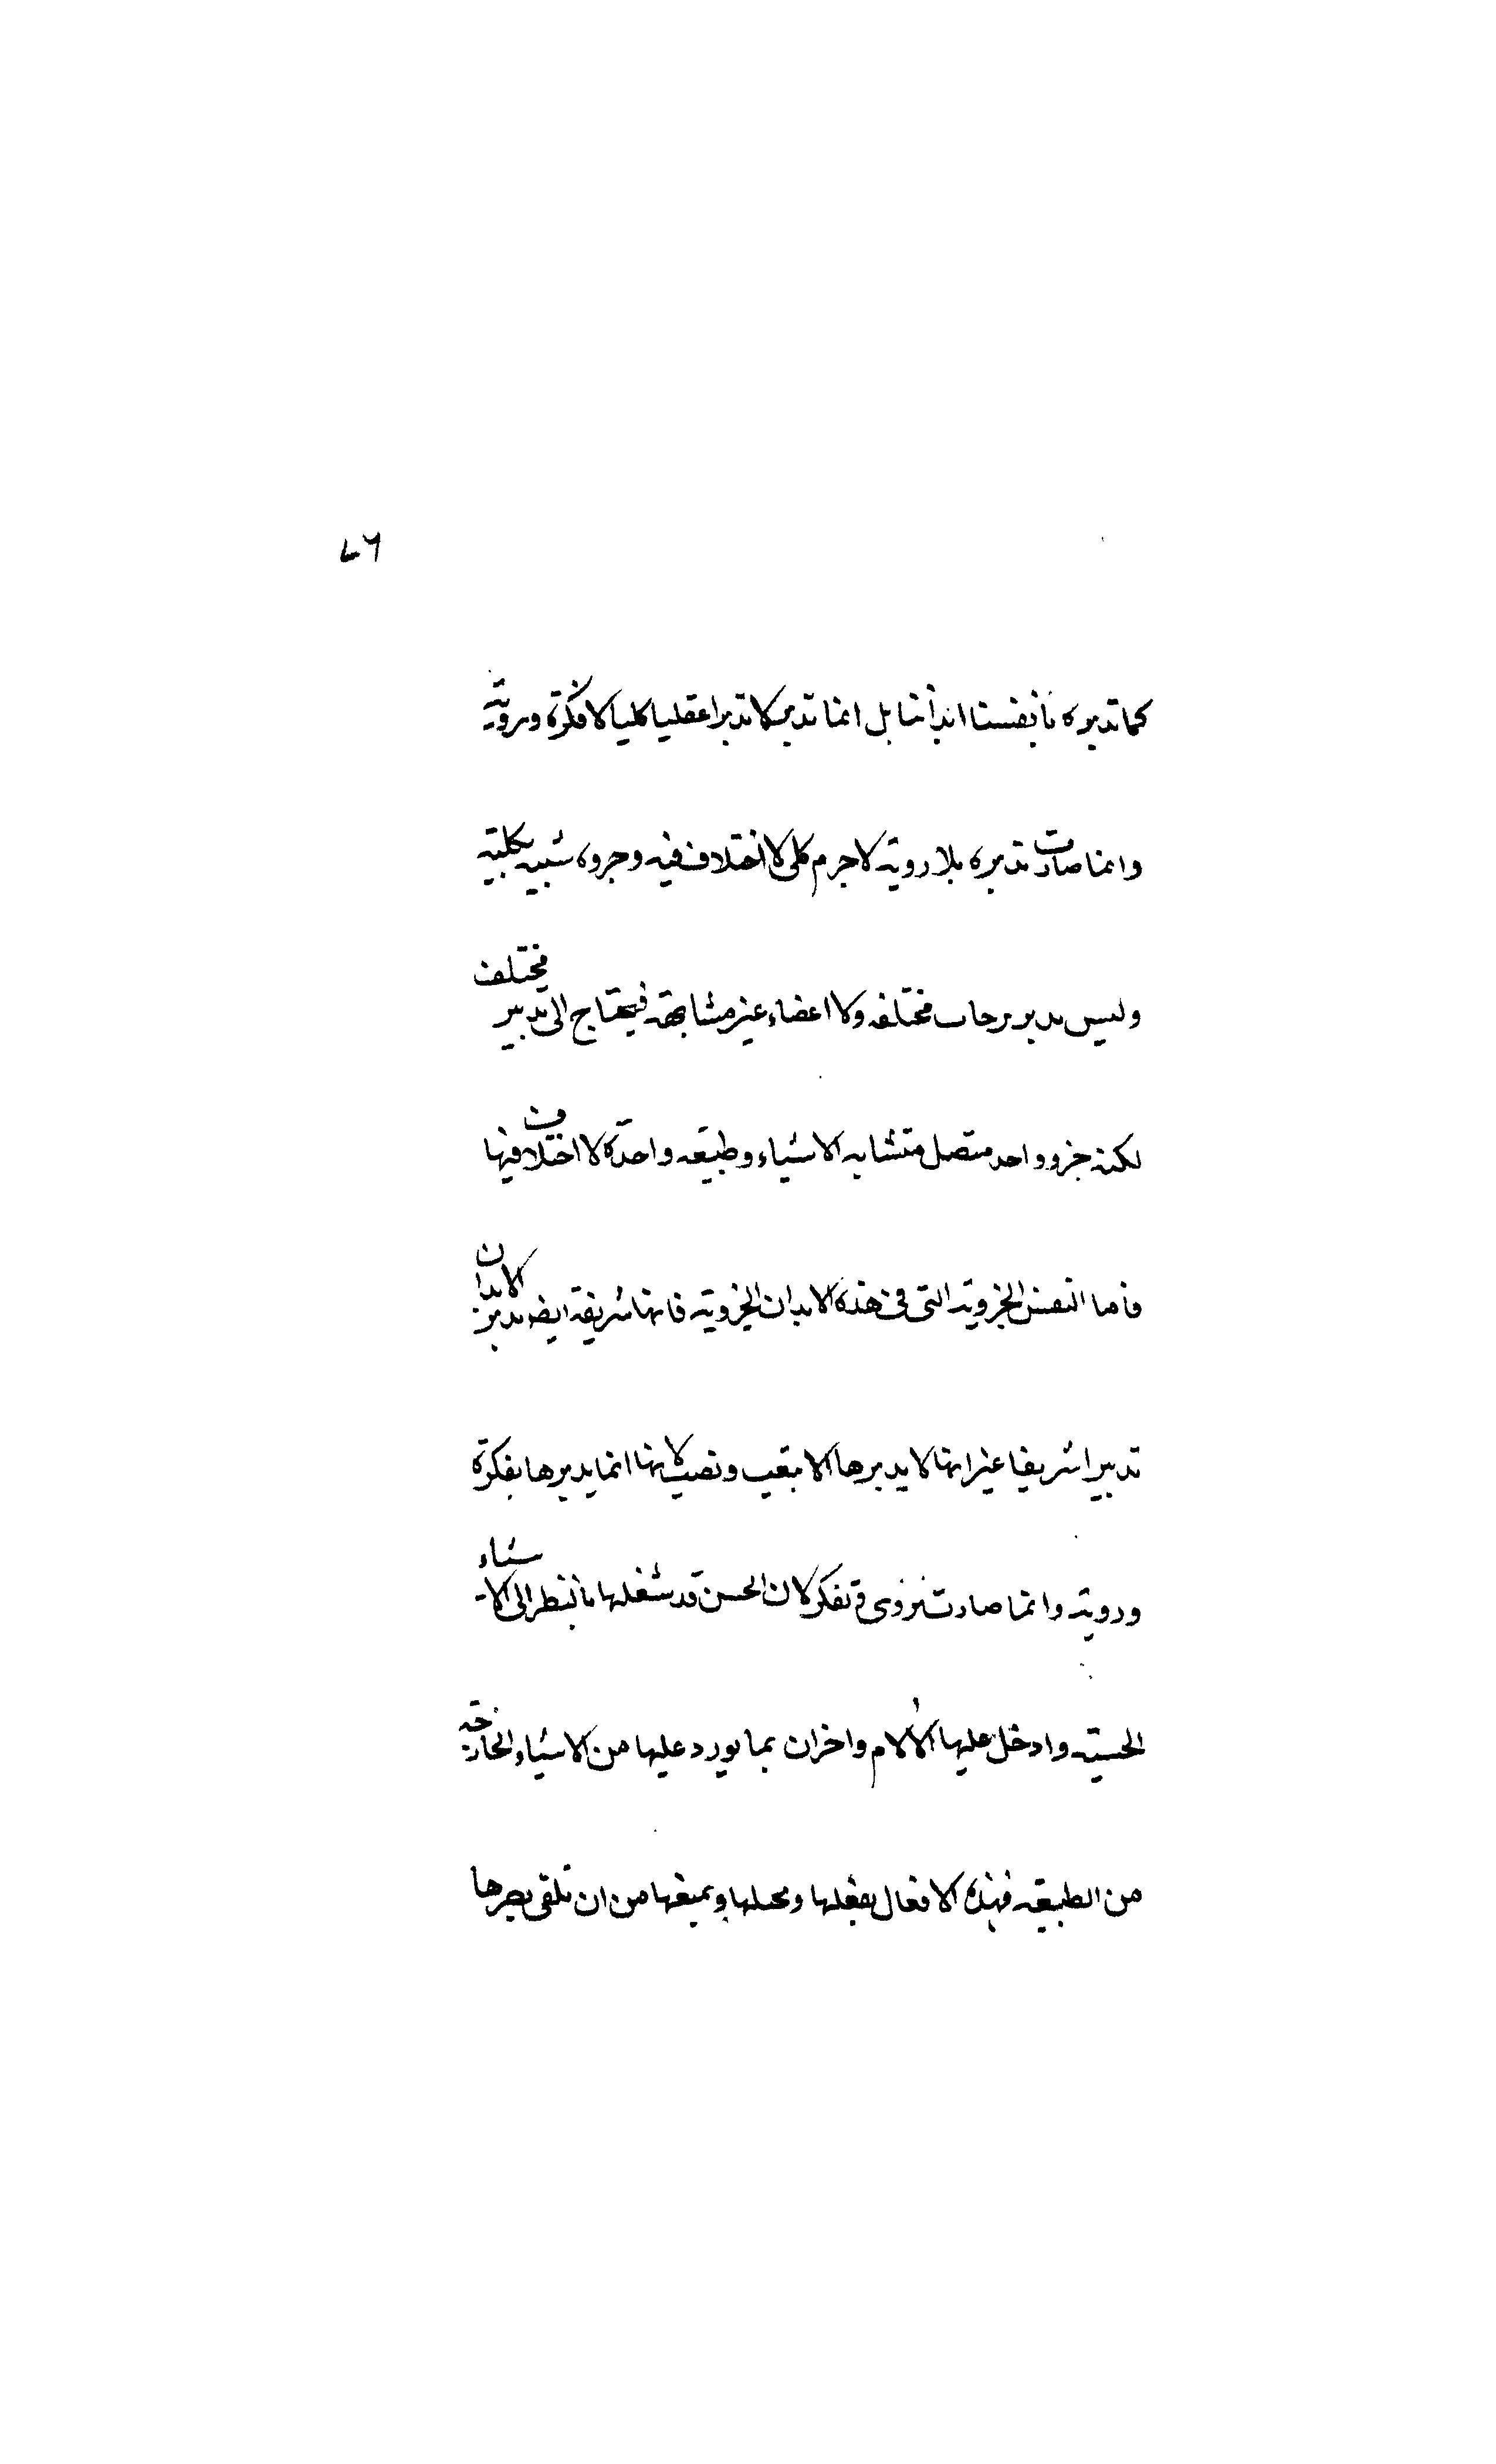 ٤٦
كما تدبره بانفسنا ابداننا بل انما تدبره تدبرا عقليا كليا لا فكرة وروية
وانما صارت تدبره بلا روية لا جرم كلى لا اختلاف فيه وجروه شبيه بكلية
وليس مختلفه ولا اعضاء غير مشابهة فيحتاج الى تدبير مختلف
لكنه جزو واحد متصل متشابه الاشياء وطبيعه واحدة لا اختلاف فيها
فأما النفس الجزوية التى فى هذه الابدان الجزوية فانها شريفة ايضه تدبر الابدان
تدبيرا شريفا غير انها لا يدبرها الا بتعب ونصب لانها انما يدبرها بفكرة
وروية وانما صارت تروى وتفكر لان الحسن قد شغلها بالنظر الى الاشياء
الحسية وادخل عليها الألام واخزان بما يورد عليها من الاشياء الخارجة
من الطبيعة فهذه الافعال ويمنعها من ان تلقى بصرها